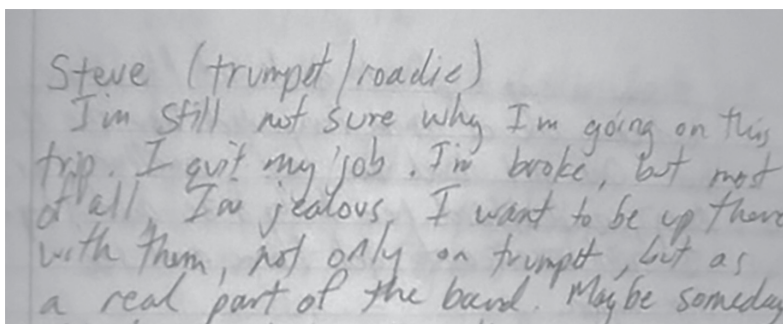 Steve (trumpet/roadie)
I'm still not sure why I'm going on this
trip. I quit my job. I'm broke, but most
of all, I'm jealous. I want to be up there
with them, not only on trumpet, but as
a real part of the band. Maybe someday